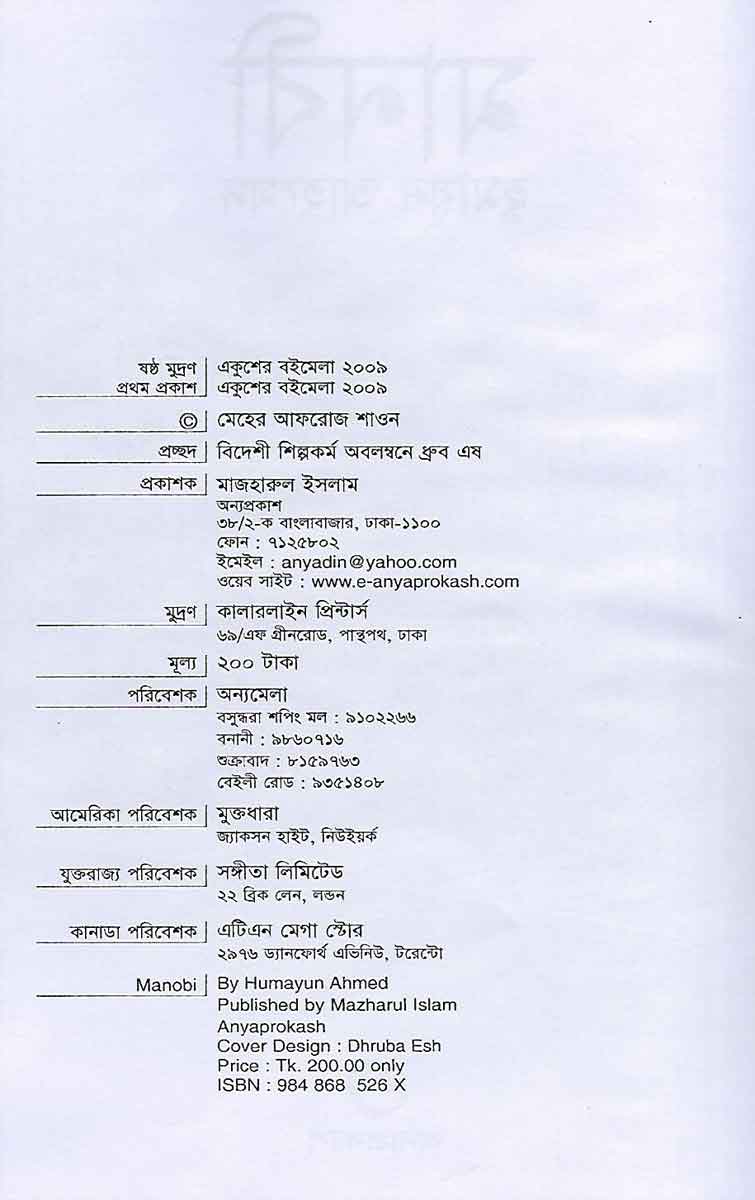 ষষ্ঠ মুদ্রণ | একুশের বইমেলা ২০০৯
প্রথম প্রকাশ | একুশের বইমেলা ২০০৯
© | মেহের আফরোজ শাওন
প্রচ্ছদ | বিদেশী শিল্পকর্ম অবলম্বনে ধ্রুব এষ
প্রকাশক | মাজহারুল ইসলাম
অন্যপ্রকাশ
৩৮/২-ক বাংলাবাজার, ঢাকা-১১০০
ফোন : ৭১২৫৮০২
ইমেইল : anyadin@yahoo.com
ওয়েব সাইট : www.e-anyaprokash.com
মুদ্রণ | কালারলাইন প্রিন্টার্স
৬৯/এফ গ্রীনরোড, পান্থপথ, ঢাকা
মূল্য | ২০০ টাকা
পরিবেশক | অন্যমেলা
বসুন্ধরা শপিং মল : ৯১০২২৬৬
বনানী : ৯৮৬০৭১৬
শুক্রাবাদ : ৮১৫৯৭৬৩
বেইলী রোড : ৯৩৫১৪০৮
আমেরিকা পরিবেশক | মুক্তধারা
জ্যাকসন হাইট, নিউইয়র্ক
যুক্তরাজ্য পরিবেশক | সঙ্গীতা লিমিটেড
২২ ব্রিক লেন, লন্ডন
কানাডা পরিবেশক | এটিএন মেগা স্টোর
২৯৭৬ ড্যানফোর্থ এভিনিউ, টরেন্টো
Manobi | By Humayun Ahmed
Published by Mazharul Islam
Anyaprokash
Cover Design : Dhruba Esh
Price : Tk. 200.00 only
ISBN : 984 868 526 X